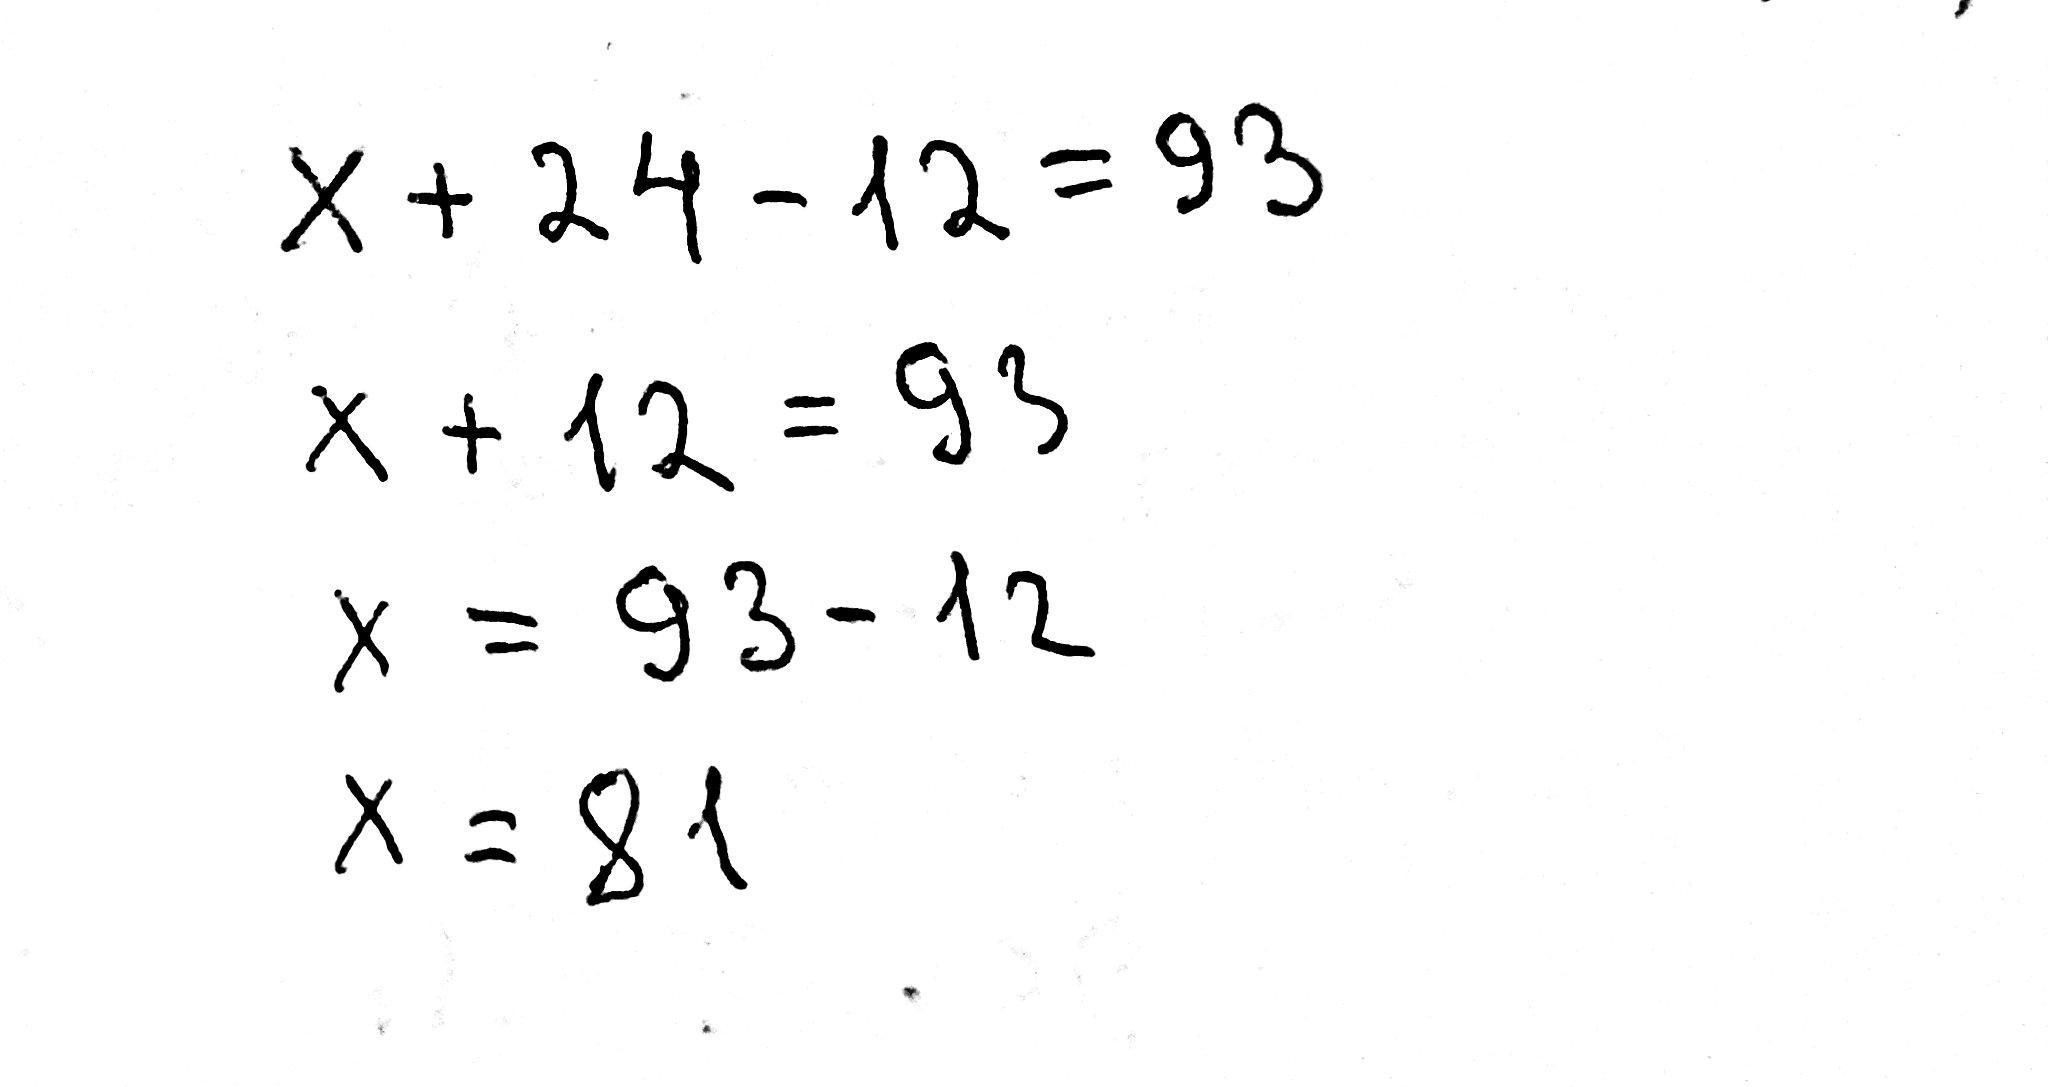 x + 24 - 12 = 93
x + 12 = 93
x = 93 - 12
x = 81